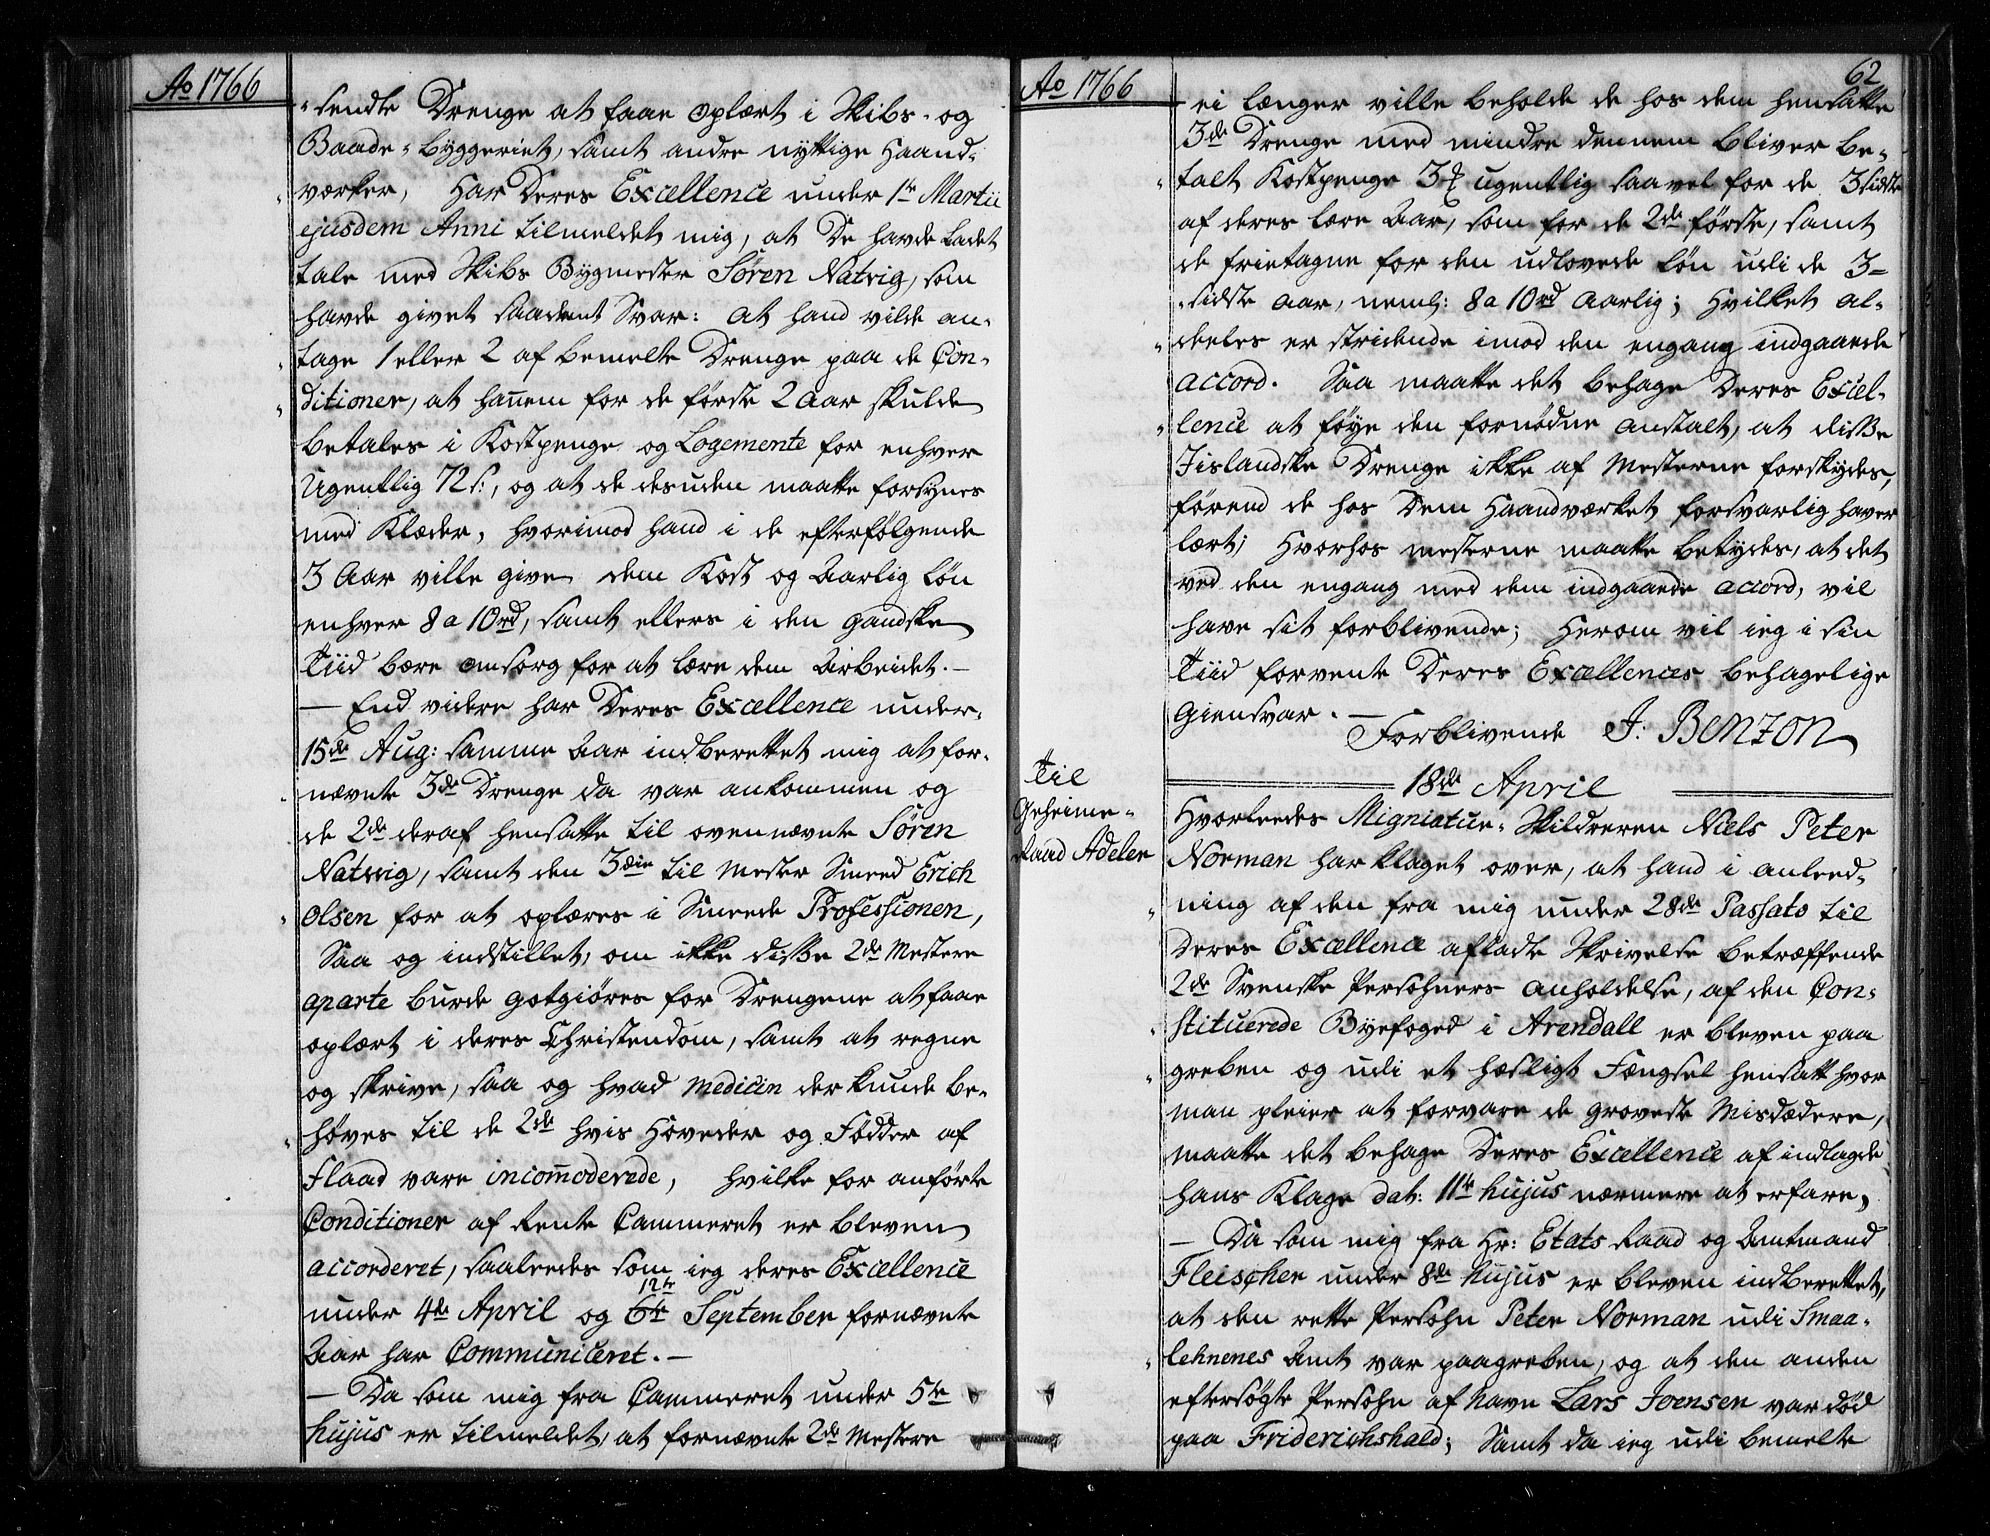 Ao 1766
sendte Drenge at faae oplært i Skibs- og
Baade-byggeriet, samt andre nyttige Haand-
værker, Har Deres Excellence under 1te Martii
ejusdem Anni tilmeldet mig, at De havde ladet
tale med Skibs Bygmester Søren Natvig, som
havde givet saadant Svar: at hand vilde an-
tage 1 eller 2 af bemelte Drenge paa de Con-
ditioner, at hannem for de første 2 Aar skulde
betales i Kostpenge og Logemente for enhver
Ugentlig 72 s:, og at de desuden maatte forsynes
med Klæder, hvorimod hand i de efterfølgende
3 Aar ville give dem Kost og Aarlig Løn
enhver 8 a 10 rd, samt ellers i den gandske
Tiid bære omsorg for at lære dem Arbeidet.—
— End videre har Deres Excellence under
15de Aug: samme Aar indberettet mig at for-
nævnte 3de Drenge da var ankommen og
de 2de deraf hensatte til ovennævnte Søren
Natwig, samt den 3die til Mester Smeed Erich
Olsen for at oplæres i Smede Professionen,
Saa og indstillet, om ikke disse 2de Mestere
aparte burde godtgiøres for Drengene at faae
oplært i deres Christendom, samt at regne
og skrive, saa og hvad Medicin der kunde be-
høves til de 2de hvis Hoveder og Fødder af
Flaad vare incommoderede, hvilke for anførte
Conditioner af Rente Cammeret er bleven
accorderet, saaleedes som ieg deres Excellence
12te
under 4de April og 6te September fornævnte
Aar har Communiceret.—
— Da som mig fra Cammeret under 5te
hujus er tilmeldet, at fornævnte 2de Mestere
Ao 1766
62
ei længer ville beholde de hos dem hensatte
3de Drenge med mindre dennem bliver be-
talt Kostpenge 3 ugentlig saavel for de 3 sidste
af deres lære Aar, som for de 2de første, samt
de frietagne for den udlovede Løn udi de 3
sidste Aar, neml: 8 a 10 rd Aarlig; Hvilket al-
deeles er stridende imod den engang indgaaede
accord. Saa maatte det behage Deres Excel-
lence at føye den fornødne anstalt, at disse
Iislandske Drenge ikke af Mesterne forskydes,
førend de hos Dem Haandværket forsvarlig haver
lært; Hvorhos mesterne maatte betydes, at det
ved den engang med dem indgaaede accord, vil
have sit forblivende; Herom vil ieg i sin
Tiid forvente Deres Excellences behagelige
giensvar.—
Forblivende J. Benzon
18de April
Til
Geheime-
Raad Adeler
Hvorledes Migniatur-Skildreren Niels Peter
Norman har klaget over, at hand i anleed-
ning af den fra mig under 28de Passato til
Deres Excellence afladte Skrivelse betræffende
2de Svenske Persohners anholdelse, af den Con-
stituerede Byefoged i Arendall er bleven paa
greben og udi et hæsligt Fængsel hensatt hvor
man pleier at forvare de groveste Misdædere,
maatte det behage Deres Excellence af indlagde
hans Klage dat: 11te hujus nærmere at erfare,
— Da som mig fra Hr: Etats Raad og Amtmand
Fleischer under 8de hujus er bleven indberettet,
at den rette Persohn Peter Norman udi Smaa-
lehnenes Amt var paagreben, og at den anden
eftersøgte Persohn af Navn Lars Joensen var død
paa Friderichshald; Samt da ieg udi bemelte